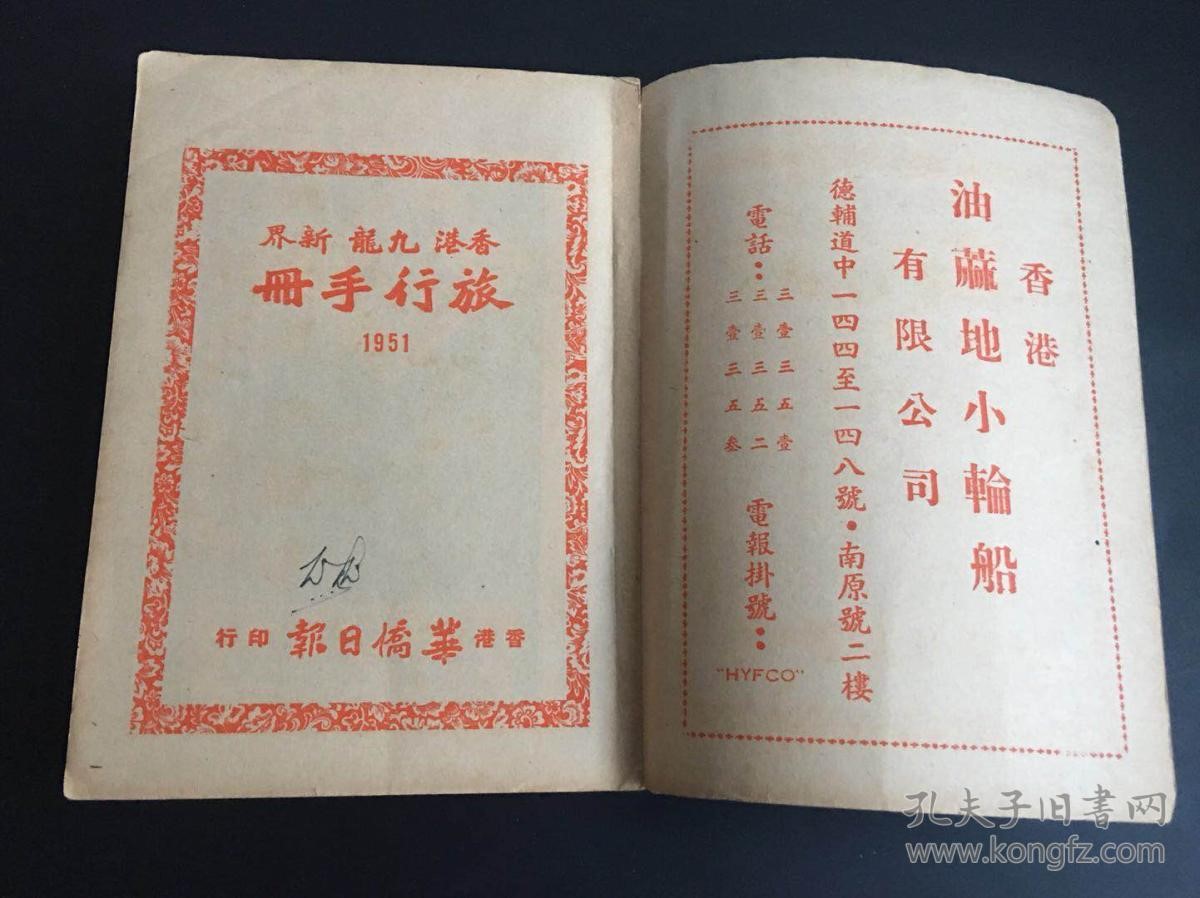 香港 九龍 新界
旅行手冊
1951
香港 華僑日報 印行
香港
油蔴地小輪船
有限公司
德輔道中一四四至一四八號·南原號二樓
電話：
三壹三五壹
三壹三五二
三壹三五叁
電報掛號：
"HYFCO"
孔夫子旧书网
www.kongfz.com